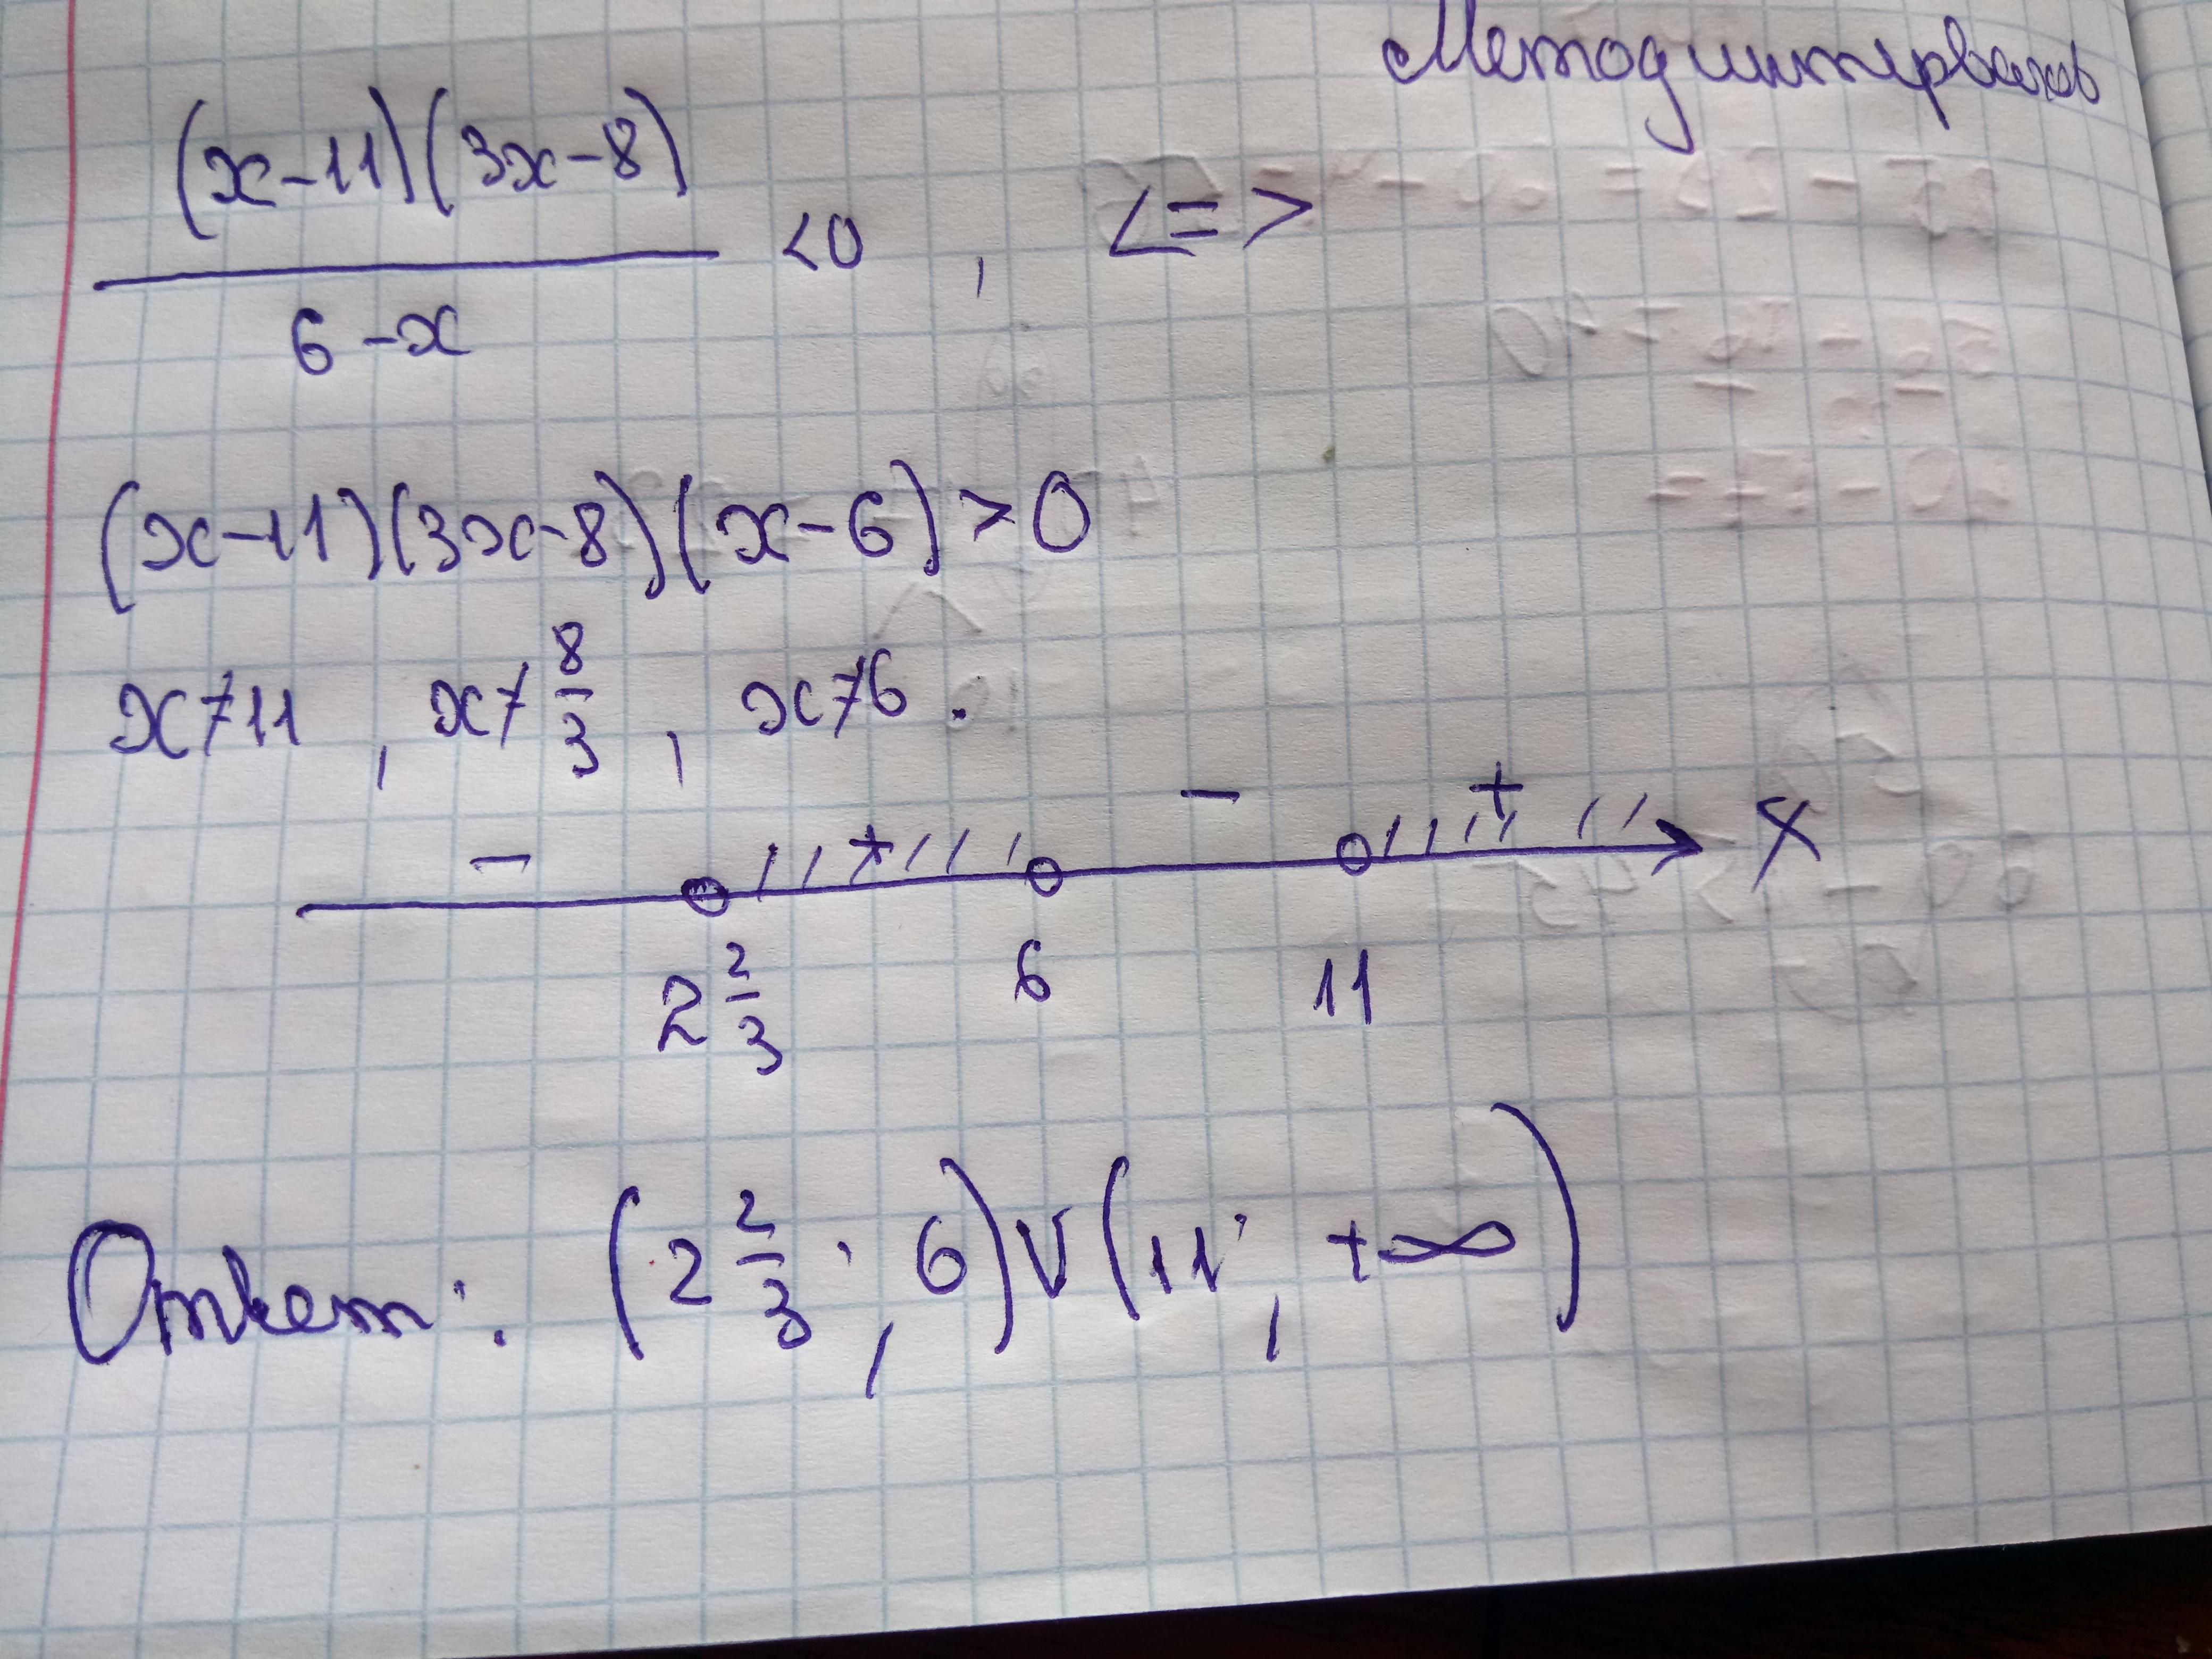 Метод интервалов
(x-11)(3x-8)
<0 , <=>
6-x
(x-11)(3x-8)(x-6)>0
x≠11 , x≠8/3 , x≠6.
- + - + x
2 2/3 6 11
Ответ: (2 2/3 ; 6)∨(11 ; +∞)